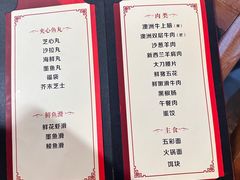 夹心鱼丸
芝心丸
沙拉丸
海鲜丸
墨鱼丸
福袋
芥末芝士
鲜鱼滑
鲜花虾滑
墨鱼滑
鲮鱼滑
肉类
澳洲牛上脑
澳洲双层牛肉
沙葱羊肉
新西兰羊肩肉
大刀腰片
鲜猪五花
鲜嫩滑牛肉
黑椒肠
午餐肉
蛋饺
主食
五彩面
火锅面
饵块